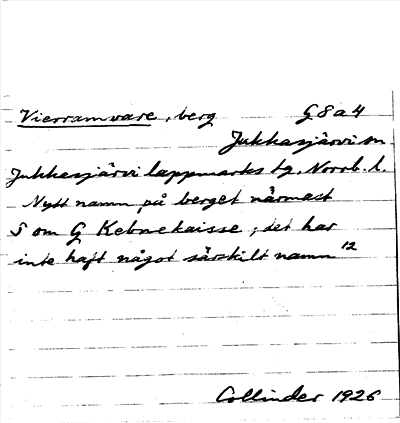 Vierramvare, berg G8a4
Jukkasjärvi sn.
Jukkasjärvi lappmarks tg, Norrb. l.
Nytt namn på berget närmast
S om G Kebnekaisse; det har
inte haft något särskilt namn 12
Collinder 1926